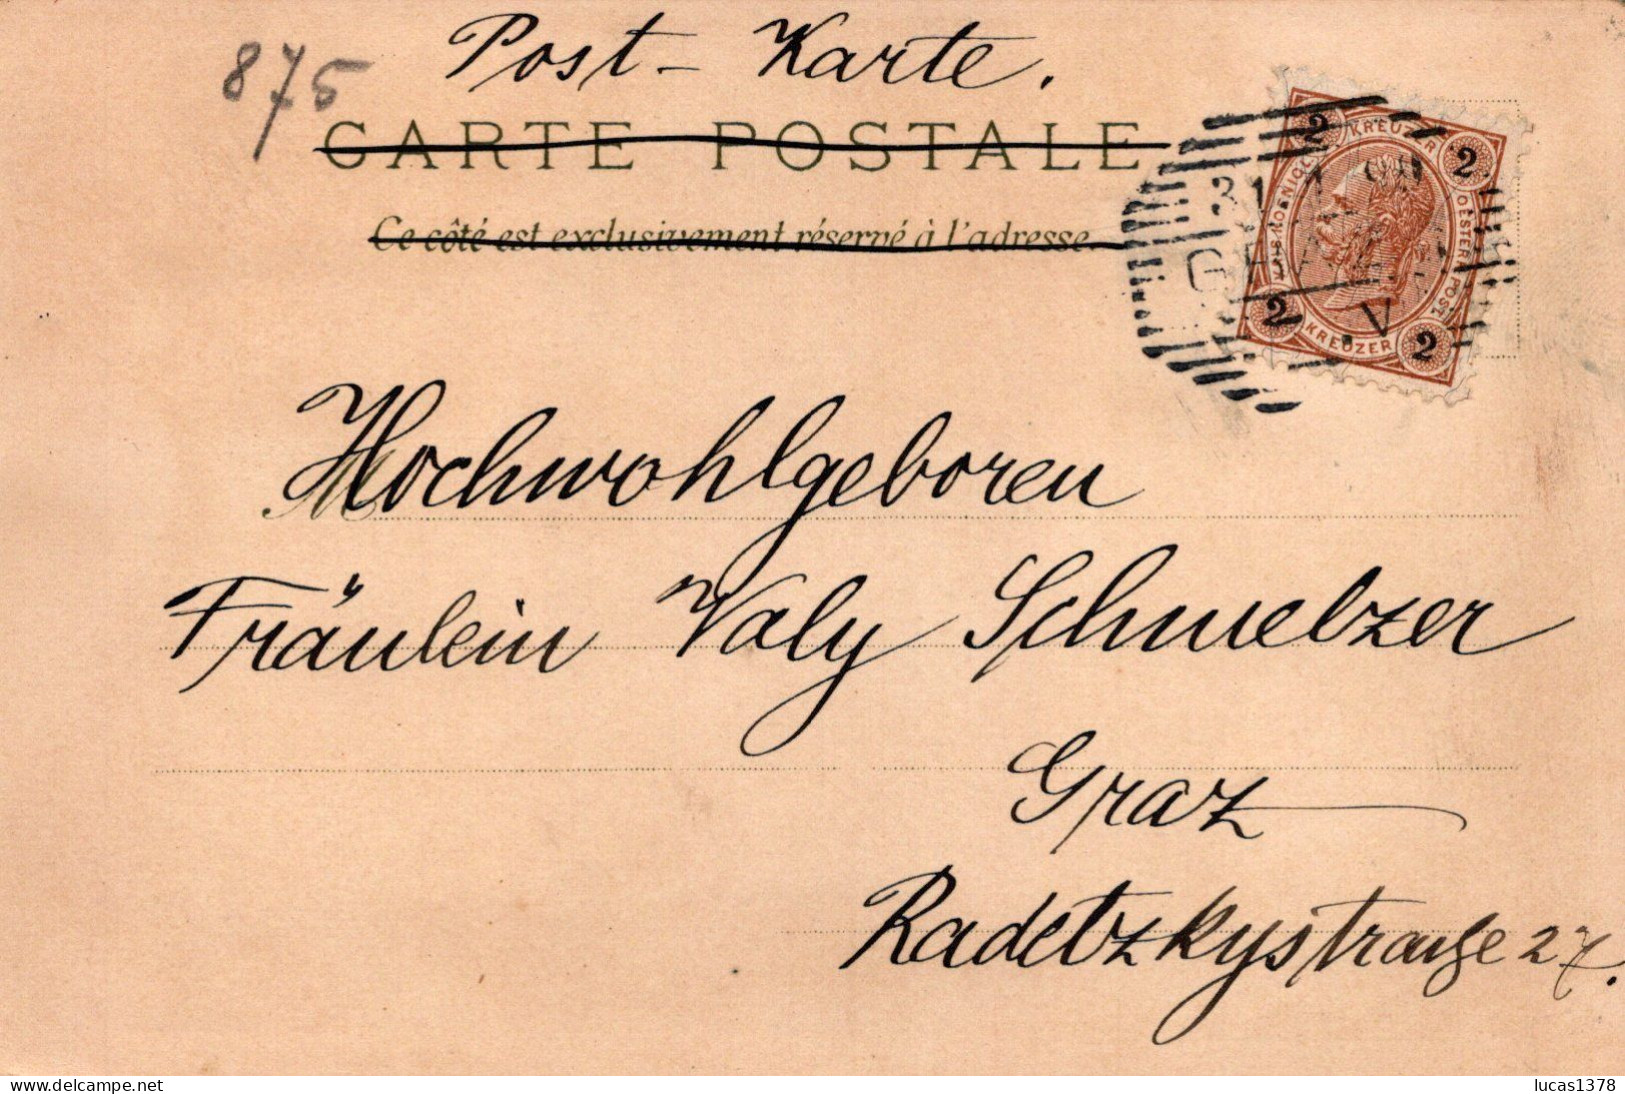 Post - Karte.
875
CARTE POSTALE
Ce côté est exclusivement réservé à l'adresse.
2 KREUZER 2
OESTERR. POST
2 KREUZER 2
V
Hochwohlgeboren
Fräulein Valy Schmelzer
Graz
Radetzkystraße 27.
www.delcampe.net
lucas1378